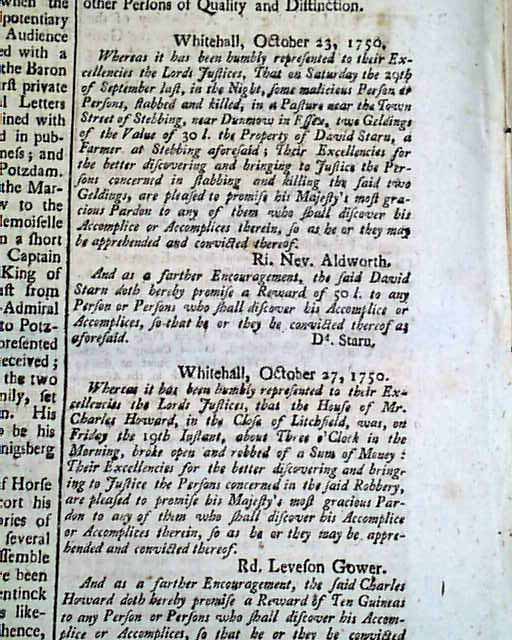 when the
potentiary
Audience
ed with a
the Baron
irst private
l Letters
lined with
d in pub-
ness; and
Potzdam.
the Mar-
w to the
lemoiselle
n a short
Captain
King of
aft from
-Admiral
to Potz-
presented
eceived;
the two
mily, set
n. His
o be his
nigsberg
f Horse
cort his
ories of
several
ssemble
re been
entinck
s like-
lhence,
other Persons of Quality and Distinction.
Whitehall, October 23, 1750.
Whereas it has been humbly represented to their Ex-
cellencies the Lords Justices, That on Saturday the 29th
of September last, in the Night, some malicious Person or
Persons, stabbed and killed, in a Pasture near the Town
Street of Stebbing, near Dunmow in Essex, two Geldings
of the Value of 30 l. the Property of David Starn, a
Farmer at Stebbing aforesaid; Their Excellencies for
the better discovering and bringing to Justice the Per-
sons concerned in stabbing and killing the said two
Geldings, are pleased to promise his Majesty's most gra-
cious Pardon to any of them who shall discover his
Accomplice or Accomplices therein, so as he or they may
be apprehended and convicted thereof.
Ri. Nev. Aldworth.
And as a farther Encouragement, the said David
Starn doth hereby promise a Reward of 50 l. to any
Person or Persons who shall discover his Accomplice or
Accomplices, so that he or they be convicted thereof as
aforesaid. Dd. Starn.
Whitehall, October 27, 1750.
Whereas it has been humbly represented to their Ex-
cellencies the Lords Justices, that the House of Mr.
Charles Howard, in the Close of Litchfield, was, on
Friday the 19th Instant, about Three o'Clock in the
Morning, broke open and robbed of a Sum of Money:
Their Excellencies for the better discovering and bring-
ing to Justice the Persons concerned in the said Robbery,
are pleased to promise his Majesty's most gracious Par-
don to any of them who shall discover his Accomplice
or Accomplices therein, so as he or they may be appre-
hended and convicted thereof.
Rd. Leveson Gower.
And as a farther Encouragement, the said Charles
Howard doth hereby promise a Reward of Ten Guineas
to any Person or Persons who shall discover his Accom-
plice or Accomplices, so that he or they be convicted